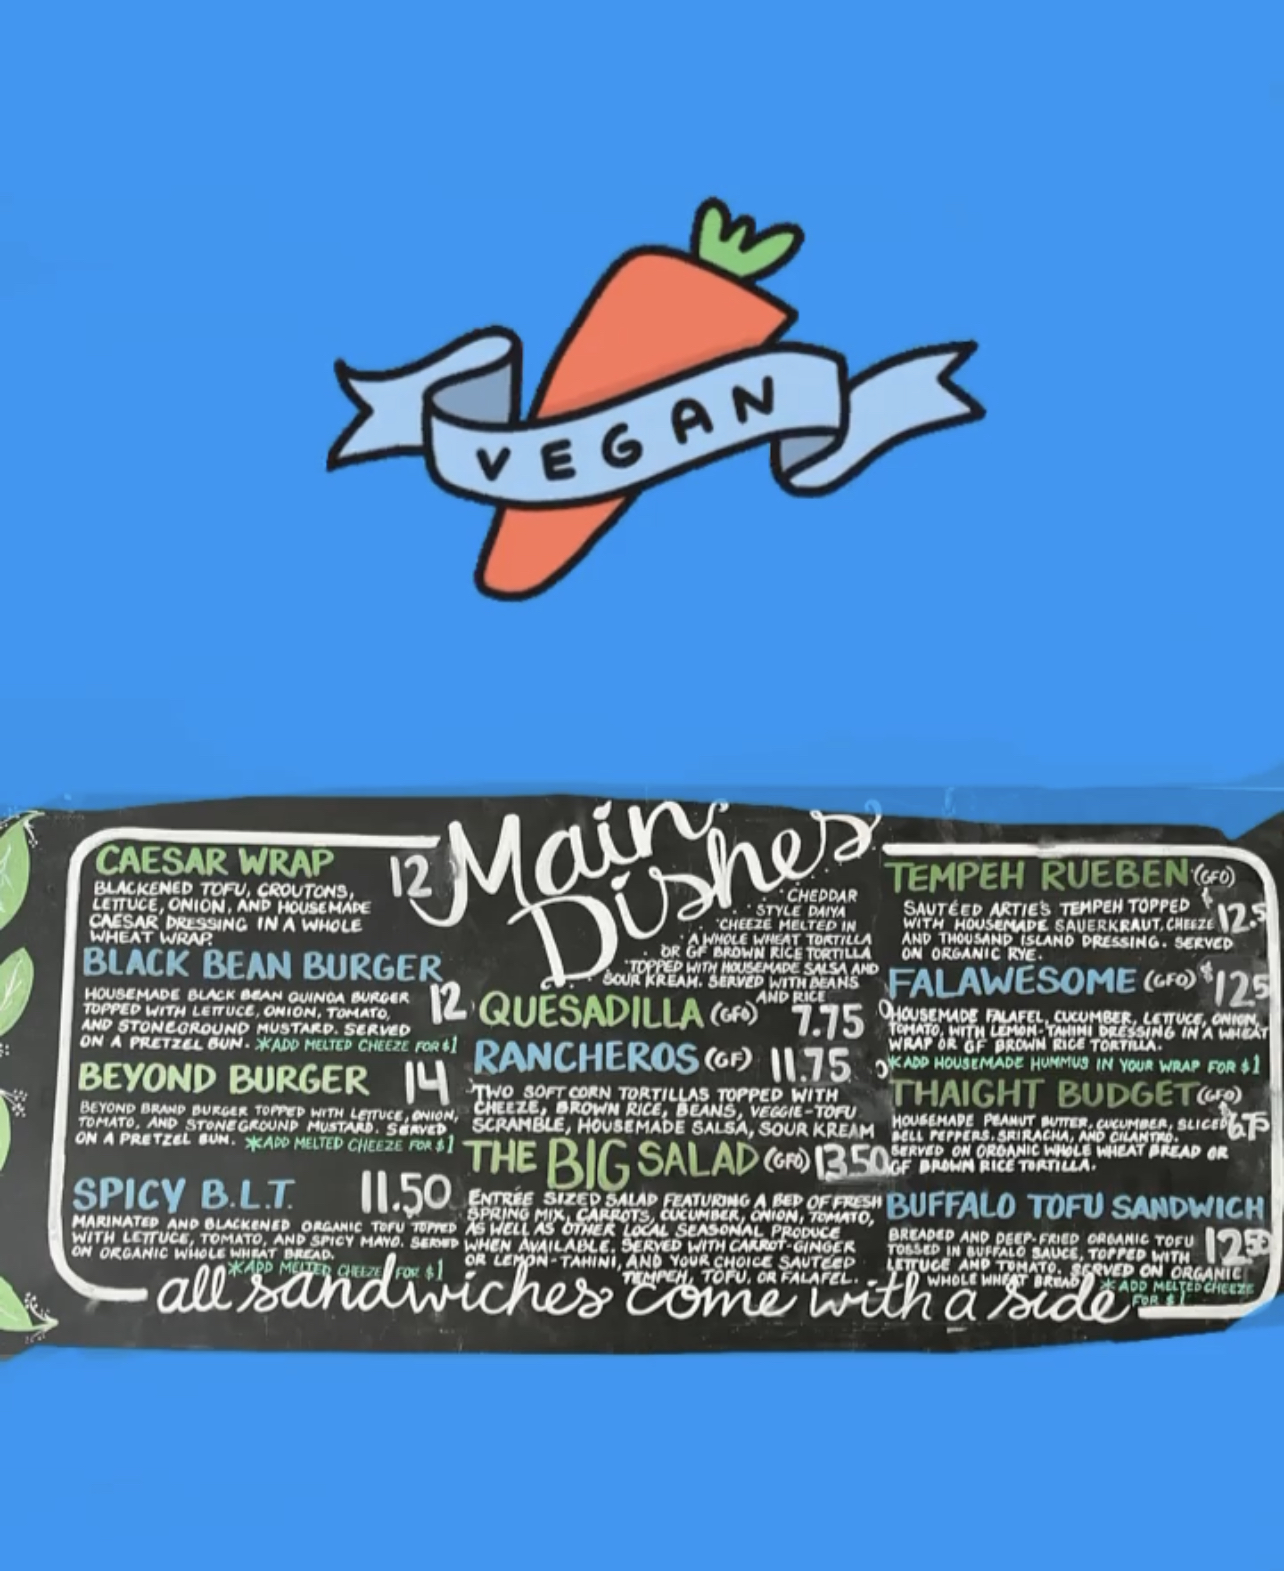 VEGAN
Main
Dishes
CAESAR WRAP 12
BLACKENED TOFU, CROUTONS,
LETTUCE, ONION, AND HOUSEMADE
CAESAR DRESSING IN A WHOLE
WHEAT WRAP.
BLACK BEAN BURGER
12
HOUSEMADE BLACK BEAN QUINOA BURGER
TOPPED WITH LETTUCE, ONION, TOMATO,
AND STONEGROUND MUSTARD. SERVED
ON A PRETZEL BUN. *ADD MELTED CHEEZE FOR $1
BEYOND BURGER 14
BEYOND BRAND BURGER TOPPED WITH LETTUCE, ONION,
TOMATO, AND STONEGROUND MUSTARD. SERVED
ON A PRETZEL BUN. *ADD MELTED CHEEZE FOR $1
SPICY B.L.T. 11.50
MARINATED AND BLACKENED ORGANIC TOFU TOPPED
WITH LETTUCE, TOMATO, AND SPICY MAYO. SERVED
ON ORGANIC WHOLE WHEAT BREAD.
*ADD MELTED CHEEZE FOR $1
CHEDDAR
STYLE DAIYA
CHEEZE MELTED IN
A WHOLE WHEAT TORTILLA
OR GF BROWN RICE TORTILLA
TOPPED WITH HOUSEMADE SALSA AND
SOUR KREAM. SERVED WITH BEANS
AND RICE
QUESADILLA (GFO) 7.75
RANCHEROS (GF) 11.75
TWO SOFT CORN TORTILLAS TOPPED WITH
CHEEZE, BROWN RICE, BEANS, VEGGIE-TOFU
SCRAMBLE, HOUSEMADE SALSA, SOUR KREAM
THE BIG SALAD (GFO) 13.50
ENTRÉE SIZED SALAD FEATURING A BED OF FRESH
SPRING MIX, CARROTS, CUCUMBER, ONION, TOMATO,
AS WELL AS OTHER LOCAL SEASONAL PRODUCE
WHEN AVAILABLE. SERVED WITH CARROT-GINGER
OR LEMON-TAHINI, AND YOUR CHOICE SAUTEED
TEMPEH, TOFU, OR FALAFEL.
TEMPEH RUEBEN (GFO)
12.5
SAUTÉED ARTIE'S TEMPEH TOPPED
WITH HOUSEMADE SAUERKRAUT, CHEEZE
AND THOUSAND ISLAND DRESSING. SERVED
ON ORGANIC RYE.
FALAWESOME (GFO) $125
HOUSEMADE FALAFEL, CUCUMBER, LETTUCE, ONION,
TOMATO, WITH LEMON-TAHINI DRESSING IN A WHEAT
WRAP OR GF BROWN RICE TORTILLA.
*ADD HOUSEMADE HUMMUS IN YOUR WRAP FOR $1
THAIGHT BUDGET (GFO)
6.75
HOUSEMADE PEANUT BUTTER, CUCUMBER, SLICED
BELL PEPPERS, SRIRACHA, AND CILANTRO.
SERVED ON ORGANIC WHOLE WHEAT BREAD OR
GF BROWN RICE TORTILLA.
BUFFALO TOFU SANDWICH
12.50
BREADED AND DEEP-FRIED ORGANIC TOFU
TOSSED IN BUFFALO SAUCE, TOPPED WITH
LETTUCE AND TOMATO. SERVED ON ORGANIC
WHOLE WHEAT BREAD *ADD MELTED CHEEZE
FOR $1
all sandwiches come with a side